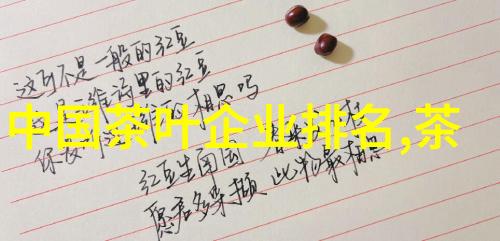 这可不是一般的红豆
维诗里的红豆
相思吗
中国茶叶企业排名,茶
红豆生南国 春来
愿君多采撷 此物最相思